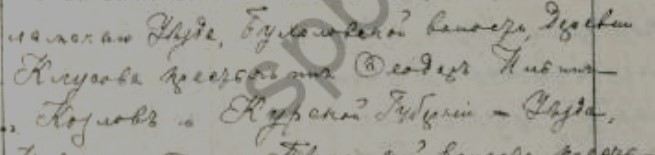 ламскаго Уѣзда, Бухоловской волости, Деревни
Клусова крестьянинъ Ѳеодоръ Ильинъ
Козловъ и Курской Губерніи – Уѣзда,